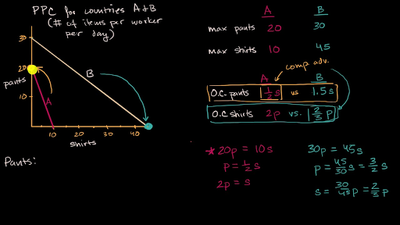 PPC for countries A & B
(# of items per worker
per day)
30
20
pants
10
A
B
10
20
30
40
shirts
Pants:
A B
max pants 20 30
max shirts 10 45
comp adv.
A B
O.C. pants 1/2 s vs 1.5 s
O.C. shirts 2p vs. 2/3 p
* 20p = 10s
p = 1/2 s
2p = s
30p = 45s
p = 45/30 s = 3/2 s
s = 30/45 p = 2/3 p